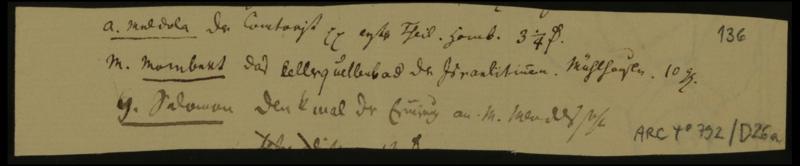 A. Meldola Der Comtorist pp erster Theil. Hamb. 3 3/4 
136
M. Mombert das Kellerquellenbad der Israelitinnen. Mühlhausen. 10
G. Salomon Denkmal der Erinnerung an M. Mendelssohn
ARC 4° 792/D26a